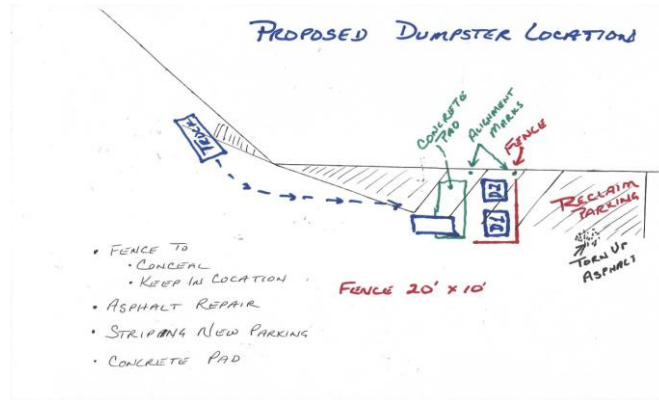 PROPOSED DUMPSTER LOCATION
TRUCK
CONCRETE
PAD
ALIGNMENT
MARKS
FENCE
D2
D1
RECLAIM
PARKING
TORN UP
ASPHALT
• FENCE TO
• CONCEAL
• KEEP IN LOCATION
• ASPHALT REPAIR
• STRIPING NEW PARKING
• CONCRETE PAD
FENCE 20' x 10'